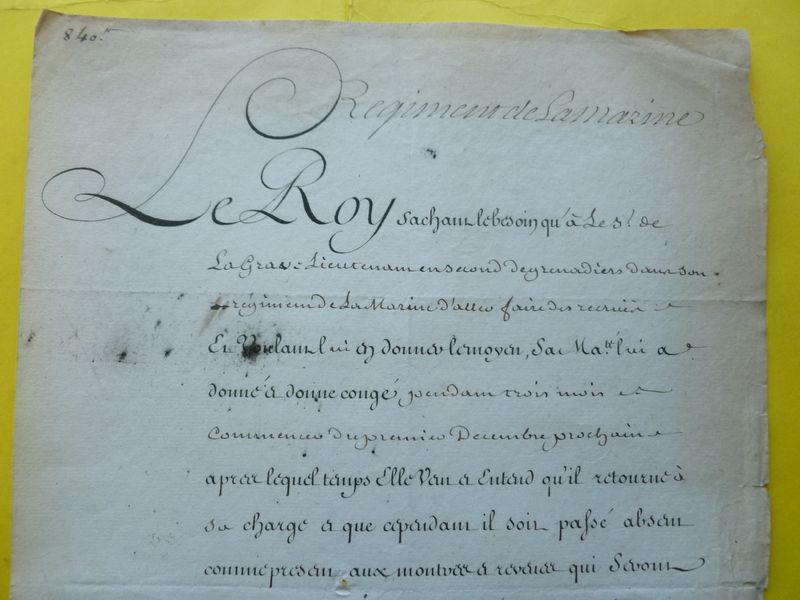 840.tt
Regiment de La Marine
Le Roy sachant le besoin qu'à Le Sr. de
La Grave Lieutenant en second de grenadiers dans son
régiment de La Marine d'aller faire des recrues
Et Voulant lui en donner le moyen, Sa Ma.té lui a
donné et donne congé, pendant trois mois
Commencer du premier Decembre prochain
apres lequel temps Elle Veut et Entend qu'il retourne à
sa charge et que cependant il soit passé absent
comme present aux montres et reveues qui Seront